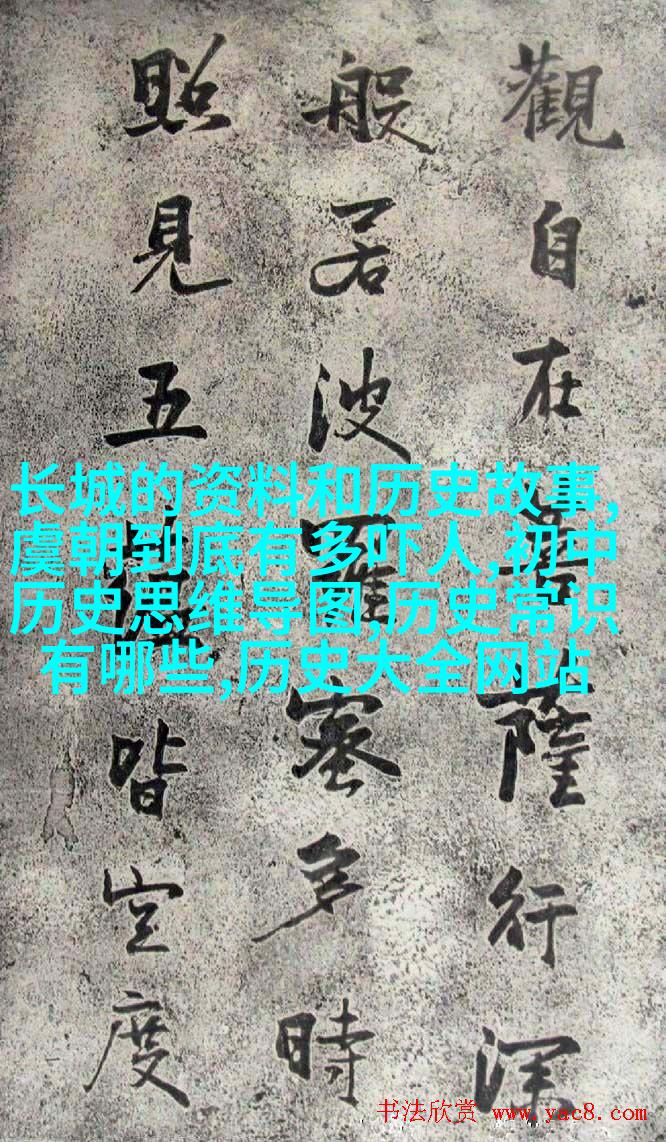 觀自在菩薩行深
般若波羅蜜多時
照見五蘊皆空度
长城的资料和历史故事,
虞朝到底有多吓人,初中
历史思维导图,历史常识
有哪些,历史大全网站
书法欣赏 www.yac8.com